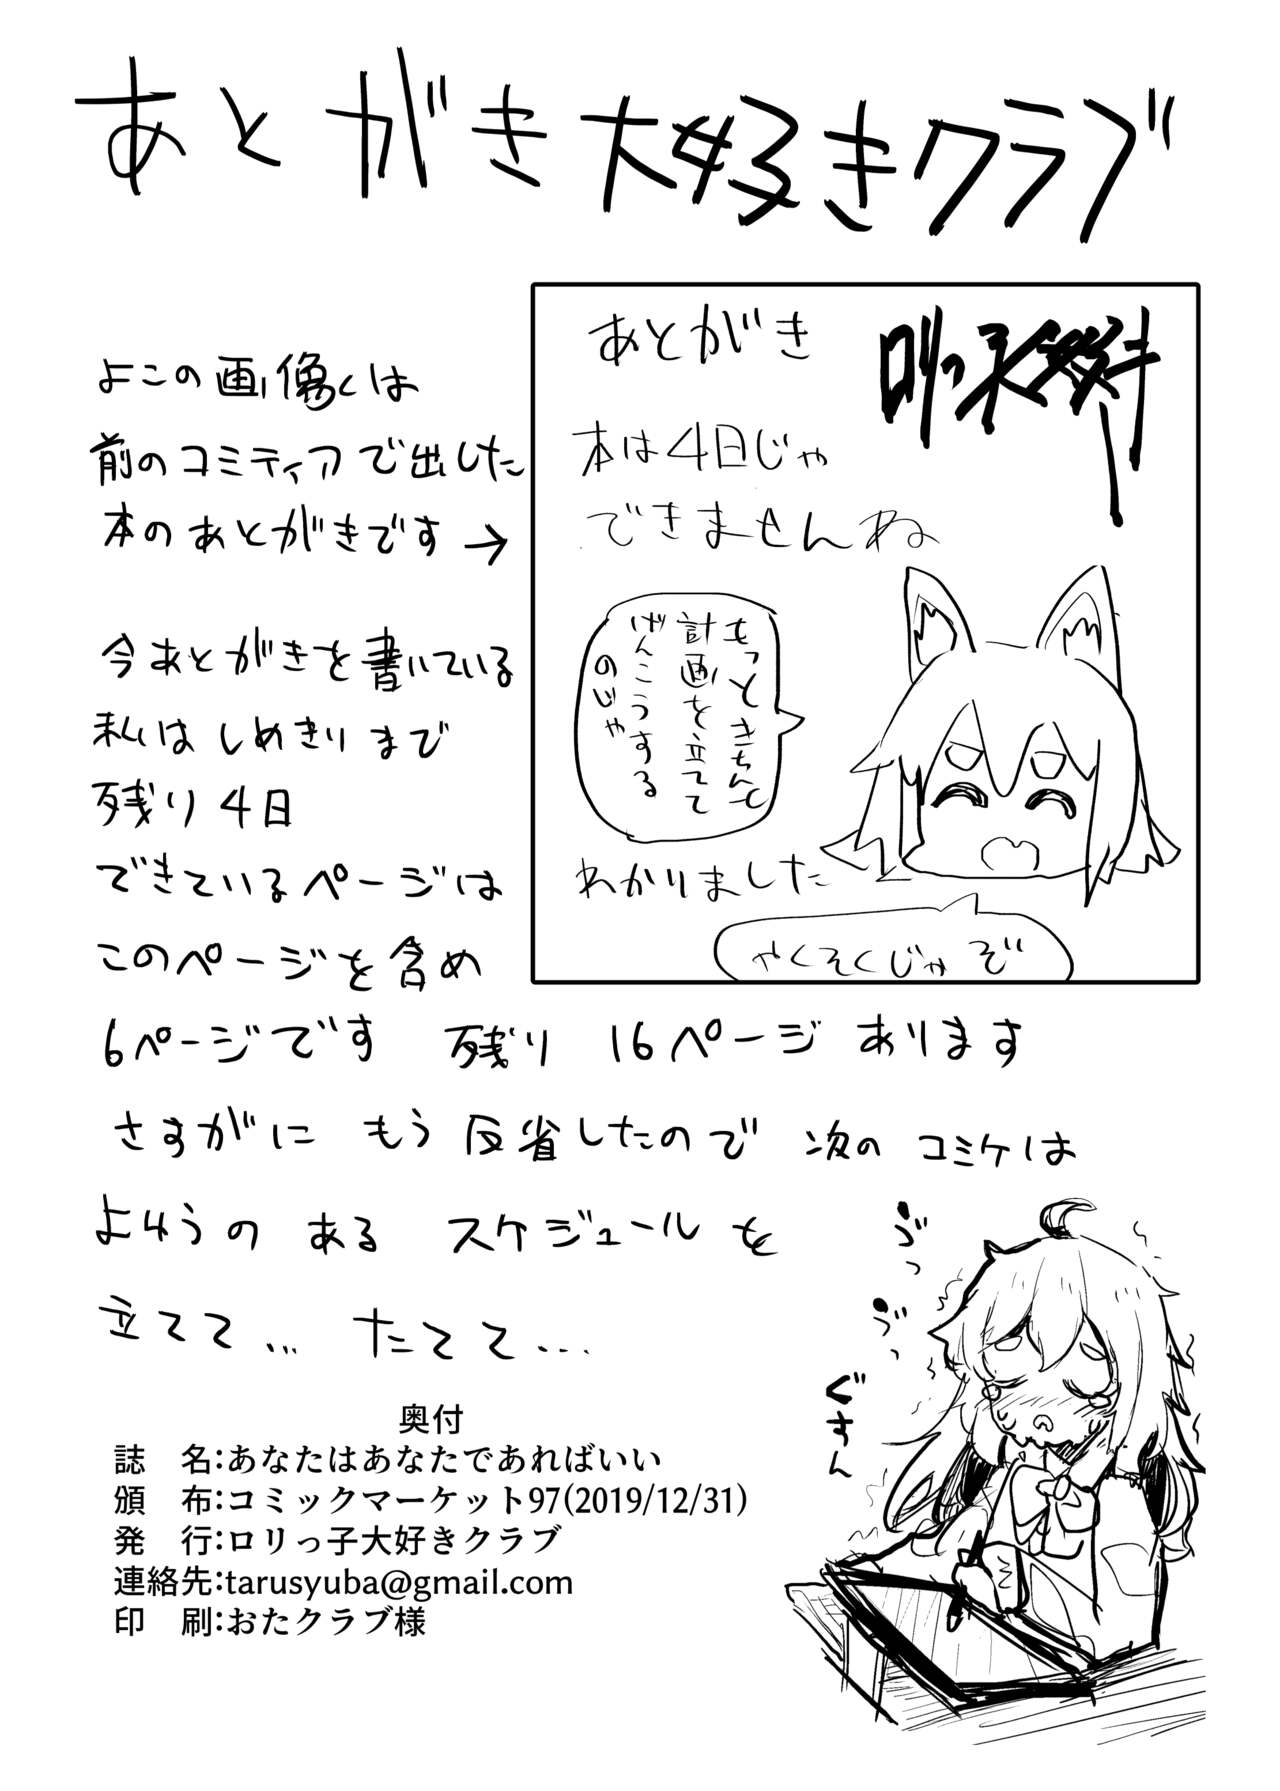 あとがき大好きクラブ
よこの画像くは
前のコミティアで出した
本のあとがきです→
今あとがきを書いている
私はしめきりまで
残り4日
できているページは
このページを含め
6ページです 残り 16ページ あります
さすがに もう 反省したので 次の コミケは
よゆうの ある スケジュール を
立てて... たてて...
あとがき
本は4日じゃ
できませんね
もっときちんと
計画を立てて
げんこうする
のじゃ
わかりました
やくそくじゃぞ
うっ
うっ
ぐすん
奥付
誌 名:あなたはあなたであればいい
頒 布:コミックマーケット97(2019/12/31)
発 行:ロリっ子大好きクラブ
連絡先:tarusyuba@gmail.com
印 刷:おたクラブ様